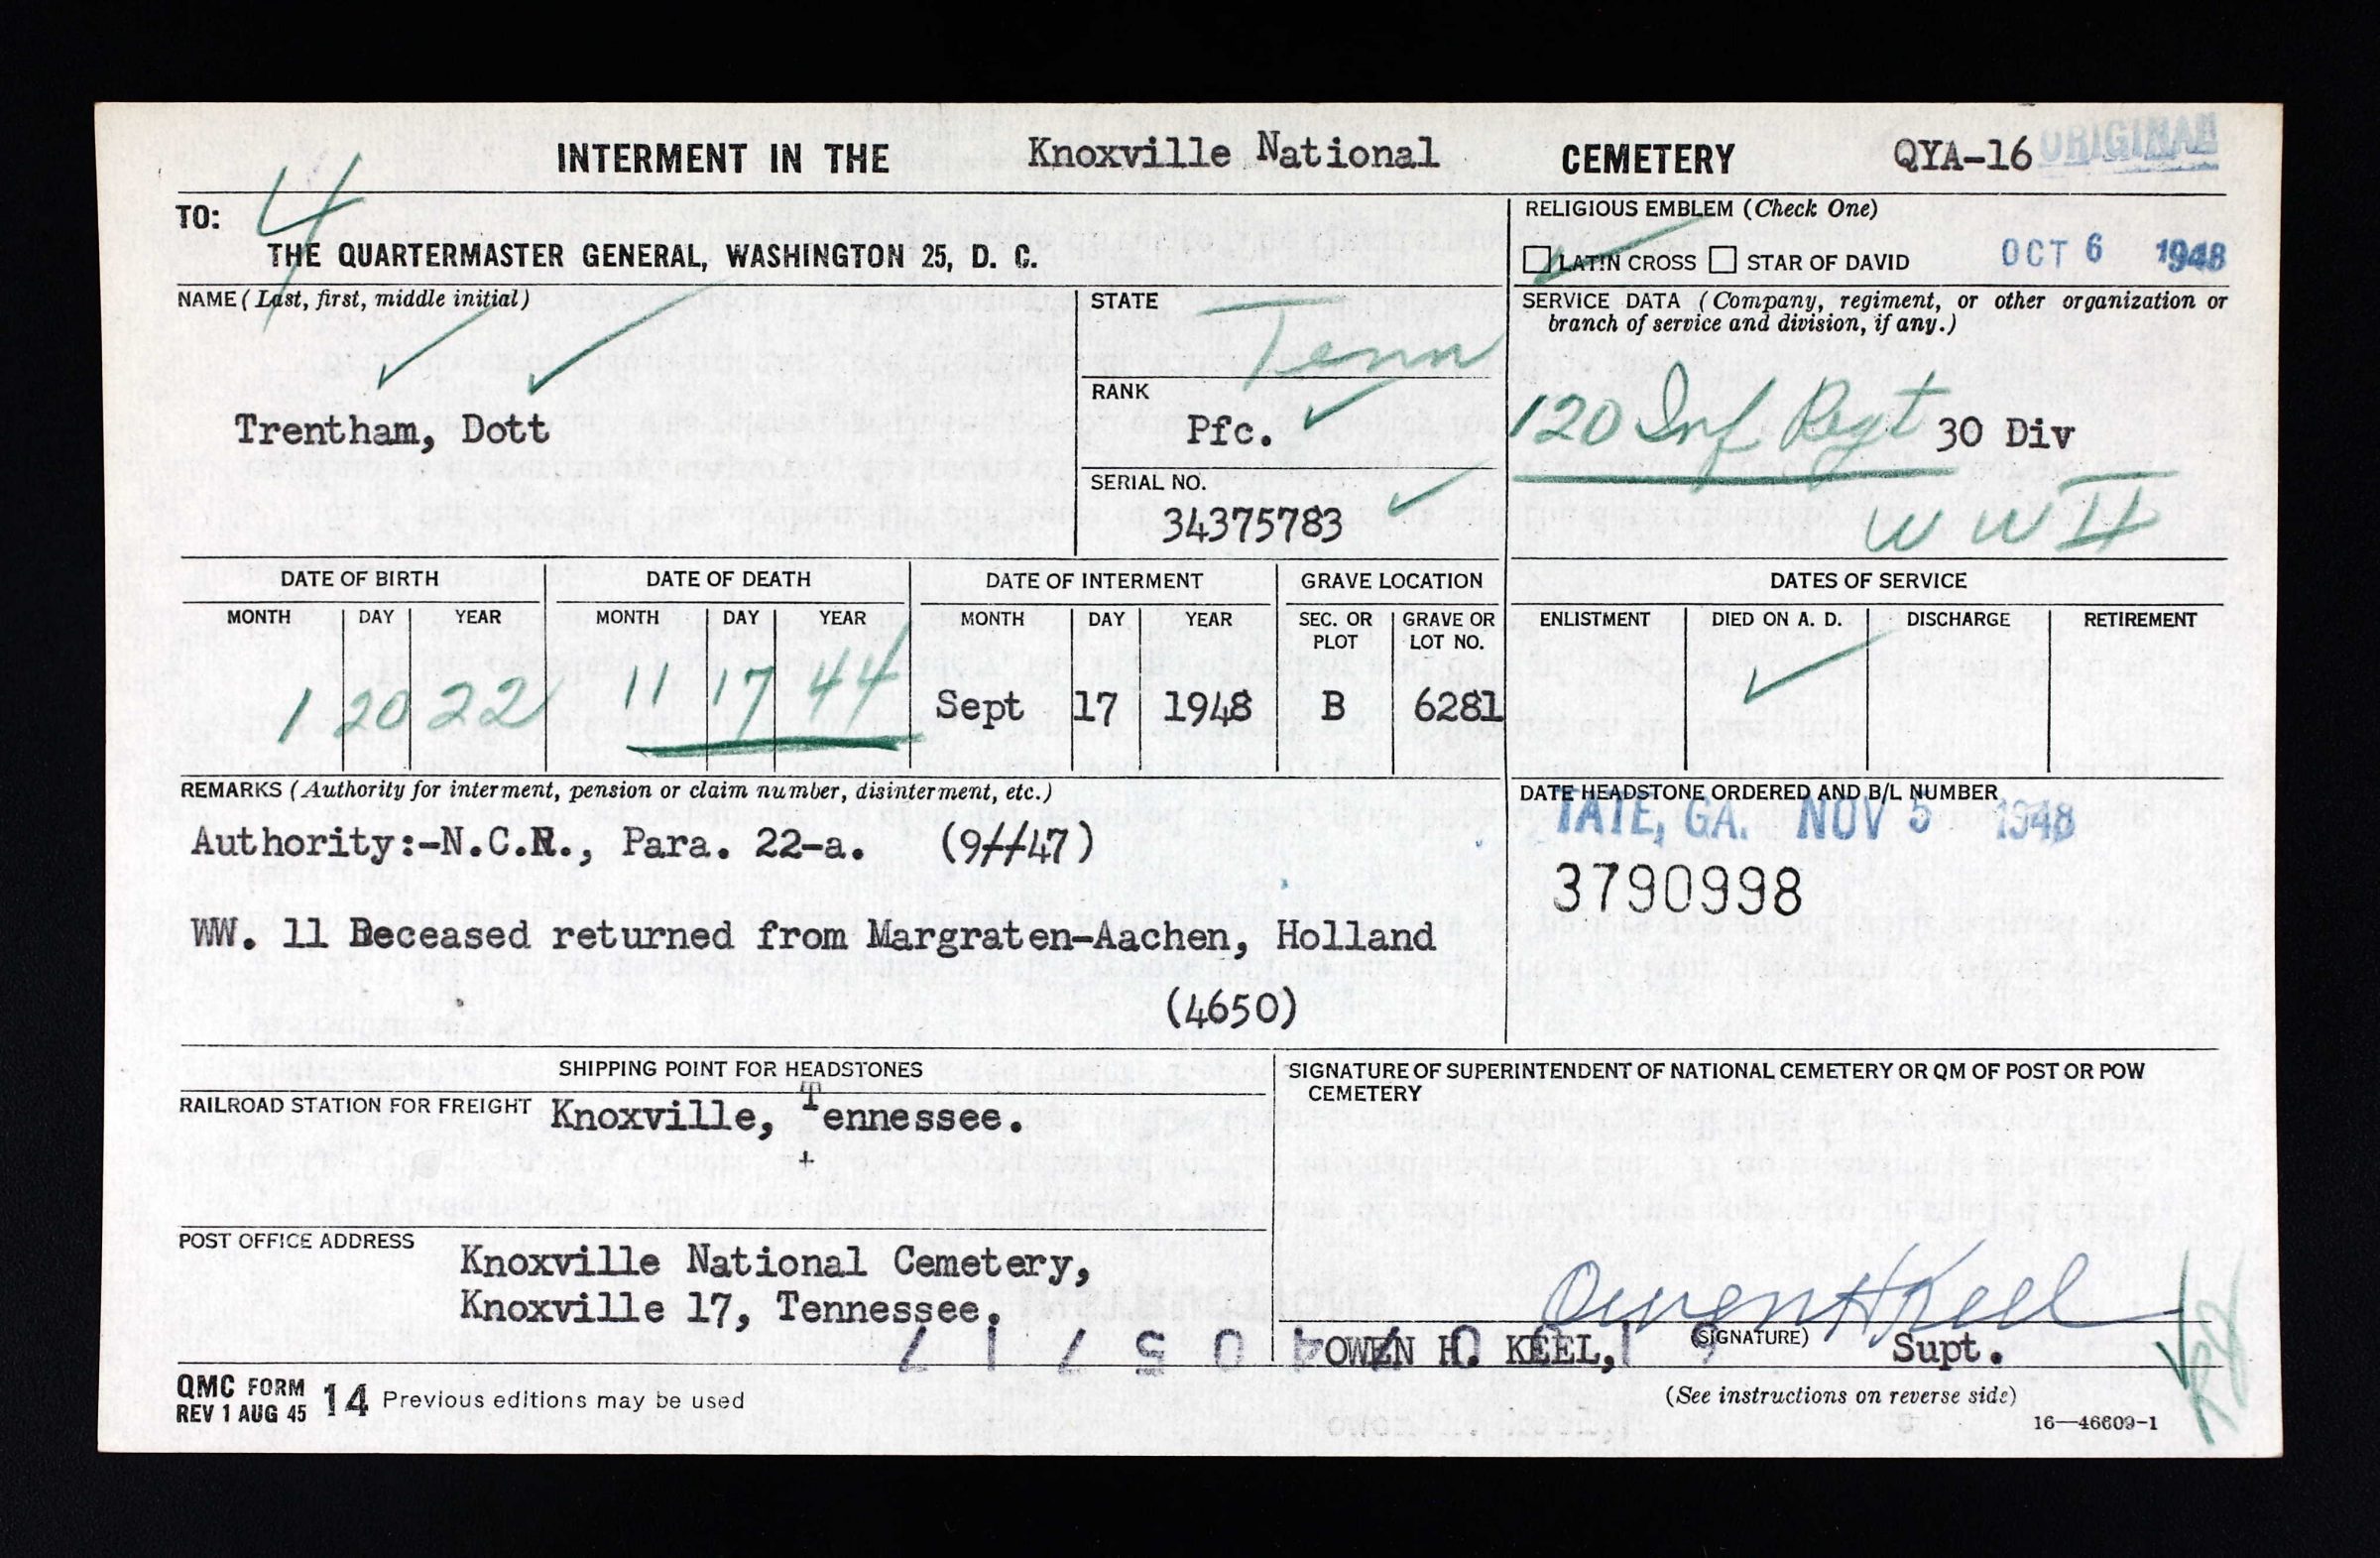 INTERMENT IN THE Knoxville National CEMETERY QYA-16 ORIGINAL
4
TO:
THE QUARTERMASTER GENERAL, WASHINGTON 25, D. C.
RELIGIOUS EMBLEM (Check One)
LATIN CROSS STAR OF DAVID OCT 6 1948
NAME (Last, first, middle initial)
Trentham, Dott
STATE
Tenn
RANK
Pfc.
SERIAL NO.
34375783
SERVICE DATA (Company, regiment, or other organization or
branch of service and division, if any.)
120 Inf Regt 30 Div
WW II
DATE OF BIRTH DATE OF DEATH DATE OF INTERMENT GRAVE LOCATION DATES OF SERVICE
MONTH DAY YEAR MONTH DAY YEAR MONTH DAY YEAR SEC. OR PLOT GRAVE OR LOT NO. ENLISTMENT DIED ON A. D. DISCHARGE RETIREMENT
1 20 22 11 17 44 Sept 17 1948 B 6281
REMARKS (Authority for interment, pension or claim number, disinterment, etc.)
Authority:-N.C.R., Para. 22-a. (9/47)
WW. 11 Deceased returned from Margraten-Aachen, Holland
(4650)
DATE HEADSTONE ORDERED AND B/L NUMBER
TATE, GA. NOV 5 1948
3790998
SHIPPING POINT FOR HEADSTONES
RAILROAD STATION FOR FREIGHT Knoxville, Tennessee.
POST OFFICE ADDRESS Knoxville National Cemetery,
Knoxville 17, Tennessee.
SIGNATURE OF SUPERINTENDENT OF NATIONAL CEMETERY OR QM OF POST OR POW
CEMETERY
Owen H Keel
OWEN H. KEEL, (SIGNATURE) Supt.
QMC FORM 14 Previous editions may be used
REV 1 AUG 45
(See instructions on reverse side)
16—46609-1